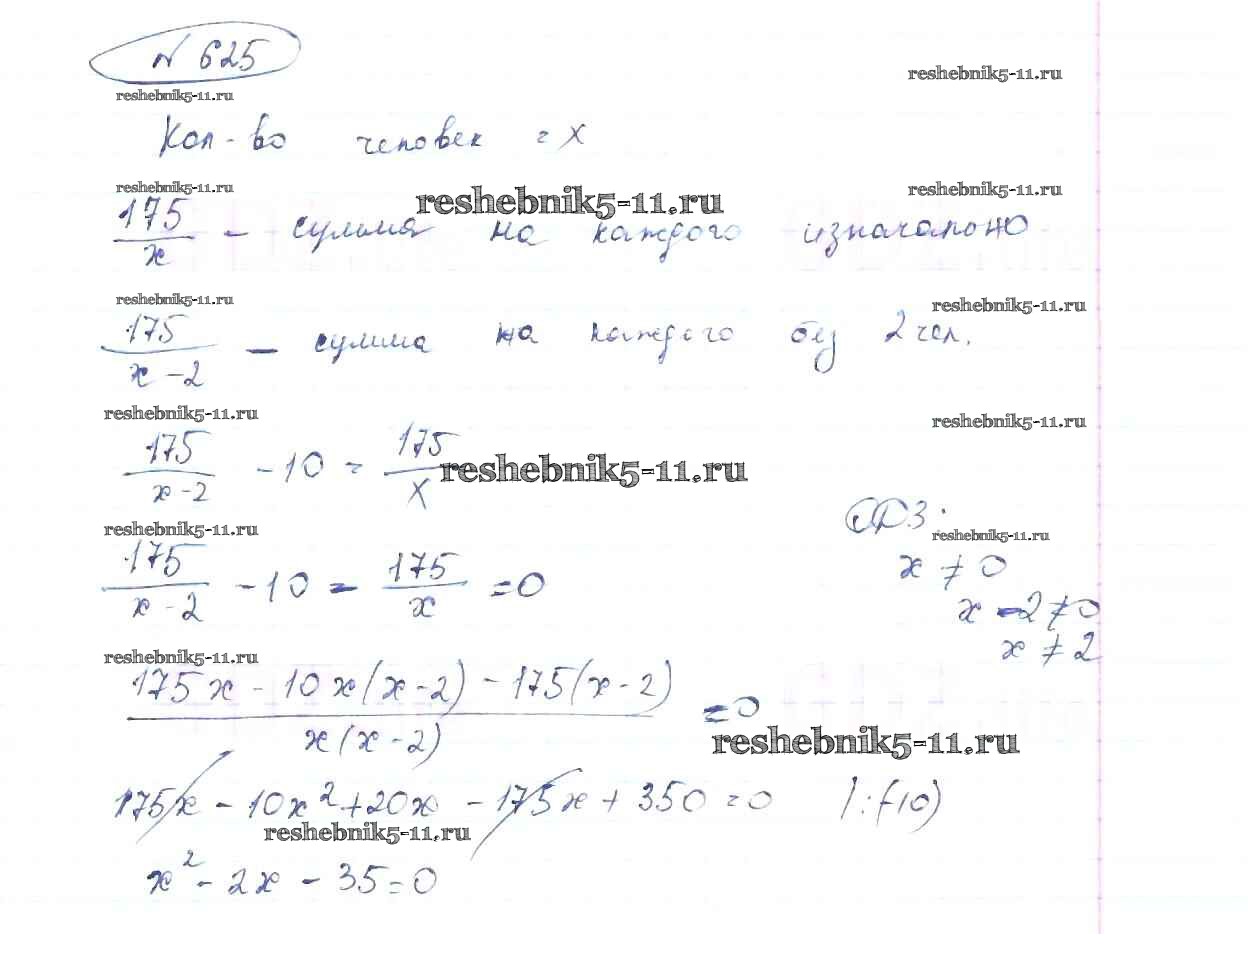 № 625
reshebnik5-11.ru
reshebnik5-11.ru
Кол-во человек = x
reshebnik5-11.ru
reshebnik5-11.ru
reshebnik5-11.ru
175/x - сумма на каждого изначально
reshebnik5-11.ru
reshebnik5-11.ru
175/(x-2) - сумма на каждого без 2 чел.
reshebnik5-11.ru
reshebnik5-11.ru
175/(x-2) - 10 = 175/x
reshebnik5-11.ru
reshebnik5-11.ru
ОДЗ:
reshebnik5-11.ru
175/(x-2) - 10 - 175/x = 0
x ≠ 0
x - 2 ≠ 0
x ≠ 2
reshebnik5-11.ru
(175x - 10x(x-2) - 175(x-2))/(x(x-2)) = 0
reshebnik5-11.ru
175x - 10x² + 20x - 175x + 350 = 0 /:(-10)
reshebnik5-11.ru
x² - 2x - 35 = 0